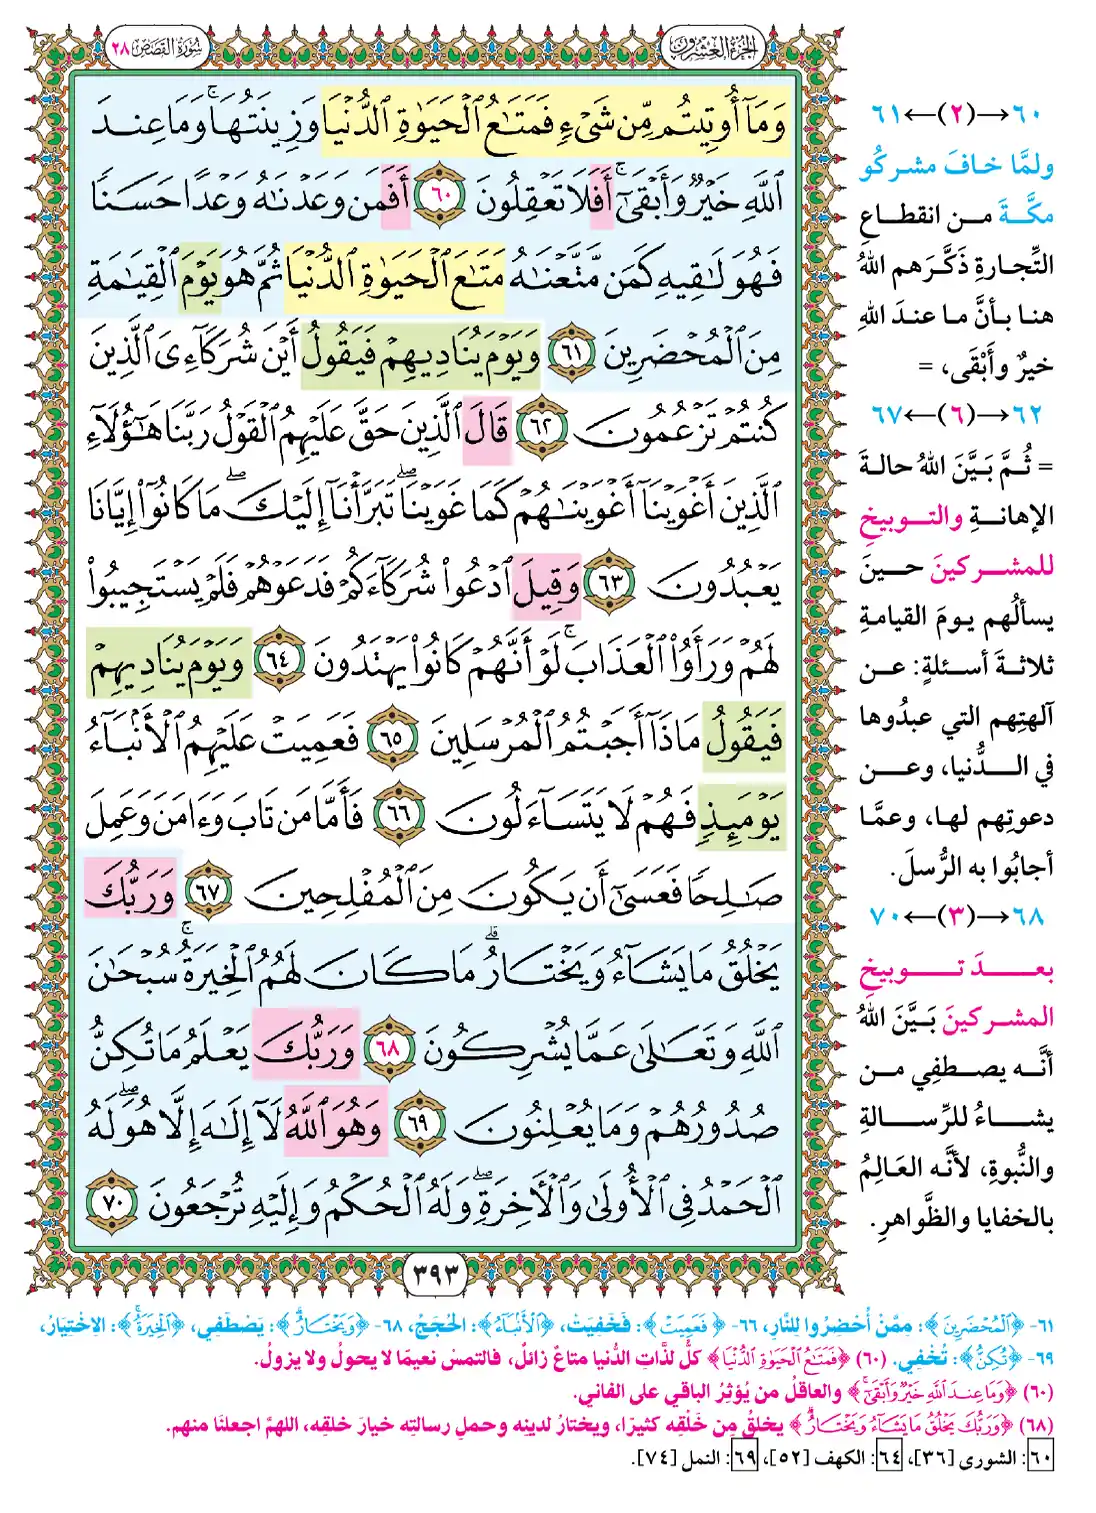 الجزء العشرون
سورة القصص ٢٨
وَمَآ أُوتِيتُم مِّن شَىْءٍ فَمَتَـٰعُ ٱلْحَيَوٰةِ ٱلدُّنْيَا وَزِينَتُهَا ۚ وَمَا عِندَ
ٱللَّهِ خَيْرٌ وَأَبْقَىٰٓ ۚ أَفَلَا تَعْقِلُونَ ٦٠ أَفَمَن وَعَدْنَـٰهُ وَعْدًا حَسَنًا
فَهُوَ لَـٰقِيهِ كَمَن مَّتَّعْنَـٰهُ مَتَـٰعَ ٱلْحَيَوٰةِ ٱلدُّنْيَا ثُمَّ هُوَ يَوْمَ ٱلْقِيَـٰمَةِ
مِنَ ٱلْمُحْضَرِينَ ٦١ وَيَوْمَ يُنَادِيهِمْ فَيَقُولُ أَيْنَ شُرَكَآءِىَ ٱلَّذِينَ
كُنتُمْ تَزْعُمُونَ ٦٢ قَالَ ٱلَّذِينَ حَقَّ عَلَيْهِمُ ٱلْقَوْلُ رَبَّنَا هَـٰٓؤُلَآءِ
ٱلَّذِينَ أَغْوَيْنَآ أَغْوَيْنَـٰهُمْ كَمَا غَوَيْنَا ۖ تَبَرَّأْنَآ إِلَيْكَ ۖ مَا كَانُوٓا۟ إِيَّانَا
يَعْبُدُونَ ٦٣ وَقِيلَ ٱدْعُوا۟ شُرَكَآءَكُمْ فَدَعَوْهُمْ فَلَمْ يَسْتَجِيبُوا۟
لَهُمْ وَرَأَوُا۟ ٱلْعَذَابَ ۚ لَوْ أَنَّهُمْ كَانُوا۟ يَهْتَدُونَ ٦٤ وَيَوْمَ يُنَادِيهِمْ
فَيَقُولُ مَاذَآ أَجَبْتُمُ ٱلْمُرْسَلِينَ ٦٥ فَعَمِيَتْ عَلَيْهِمُ ٱلْأَنۢبَآءُ
يَوْمَئِذٍ فَهُمْ لَا يَتَسَآءَلُونَ ٦٦ فَأَمَّا مَن تَابَ وَءَامَنَ وَعَمِلَ
صَـٰلِحًا فَعَسَىٰٓ أَن يَكُونَ مِنَ ٱلْمُفْلِحِينَ ٦٧ وَرَبُّكَ
يَخْلُقُ مَا يَشَآءُ وَيَخْتَارُ ۗ مَا كَانَ لَهُمُ ٱلْخِيَرَةُ ۚ سُبْحَـٰنَ
ٱللَّهِ وَتَعَـٰلَىٰ عَمَّا يُشْرِكُونَ ٦٨ وَرَبُّكَ يَعْلَمُ مَا تُكِنُّ
صُدُورُهُمْ وَمَا يُعْلِنُونَ ٦٩ وَهُوَ ٱللَّهُ لَآ إِلَـٰهَ إِلَّا هُوَ ۖ لَهُ
ٱلْحَمْدُ فِى ٱلْأُولَىٰ وَٱلْـَٔاخِرَةِ ۖ وَلَهُ ٱلْحُكْمُ وَإِلَيْهِ تُرْجَعُونَ ٧٠
٣٩٣
٦٠→(٢)←٦١
ولمَّا خافَ مشركُو
مكَّةَ من انقطاعِ
التِّجارةِ ذَكَّرَهم اللهُ
هنا بأنَّ ما عندَ اللهِ
خيرٌ وأَبْقَى، =
٦٢→(٦)←٦٧
= ثُمَّ بَيَّنَ اللهُ حالةَ
الإهانةِ والتوبيخِ
للمشركينَ حينَ
يسألُهم يومَ القيامةِ
ثلاثةَ أسئلةٍ: عن
آلهتِهم التي عبدُوها
في الدُّنيا، وعن
دعوتِهم لها، وعمَّا
أجابُوا به الرُّسلَ.
٦٨→(٣)←٧٠
بعدَ توبيخِ
المشركينَ بَيَّنَ اللهُ
أنَّه يصطفِي من
يشاءُ للرِّسالةِ
والنُّبوةِ، لأنَّه العَالِمُ
بالخفايا والظَّواهرِ.
٦١- ﴿ٱلْمُحْضَرِينَ﴾: مِمَّنْ أُحْضِرُوا لِلنَّارِ، ٦٦- ﴿فَعَمِيَتْ﴾: فَخَفِيَتْ، ﴿ٱلْأَنۢبَآءُ﴾: الْحُجَجُ، ٦٨- ﴿وَيَخْتَارُ ۗ﴾: يَصْطَفِي، ﴿ٱلْخِيَرَةُ ۚ﴾: الِاخْتِيَارُ،
٦٩- ﴿تُكِنُّ﴾: تُخْفِي. (٦٠) ﴿فَمَتَـٰعُ ٱلْحَيَوٰةِ ٱلدُّنْيَا﴾ كلُّ لذَّاتِ الدُّنيا متاعٌ زائلٌ، فالتمسْ نعيمًا لا يحولُ ولا يزولُ.
(٦٠) ﴿وَمَا عِندَ ٱللَّهِ خَيْرٌ وَأَبْقَىٰٓ ۚ﴾ والعاقلُ من يُؤثِرُ الباقي على الفاني.
(٦٨) ﴿وَرَبُّكَ يَخْلُقُ مَا يَشَآءُ وَيَخْتَارُ ۗ﴾ يخلقُ مِن خَلْقِه كثيرًا، ويختارُ لدينِه وحملِ رسالتِه خيارَ خلقِه، اللهمَّ اجعلنَا منهم.
٦٠: الشورى [٣٦]، ٦٤: الكهف [٥٢]، ٦٩: النمل [٧٤].